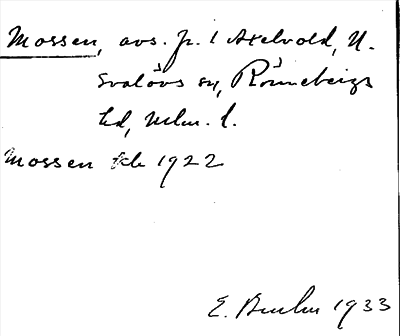 Mossen, avs. fr. 1 Axelvold, N.
Svalövs sn, Rönnebergs
hd, Mlm. l.
Mossen Ek 1922
E. 1933